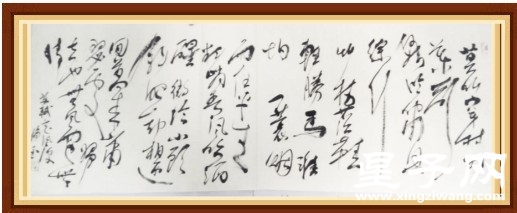 莫听穿林打
葉声何
妨吟啸且
徐行
竹杖芒鞋
轻胜马谁
怕一蓑烟
雨任平生
料峭春风吹酒
醒微冷山头
斜照却相迎
回首向来萧
瑟处归
去也无风雨也无
晴
苏轼定风波
星子网
www.xingziwang.com